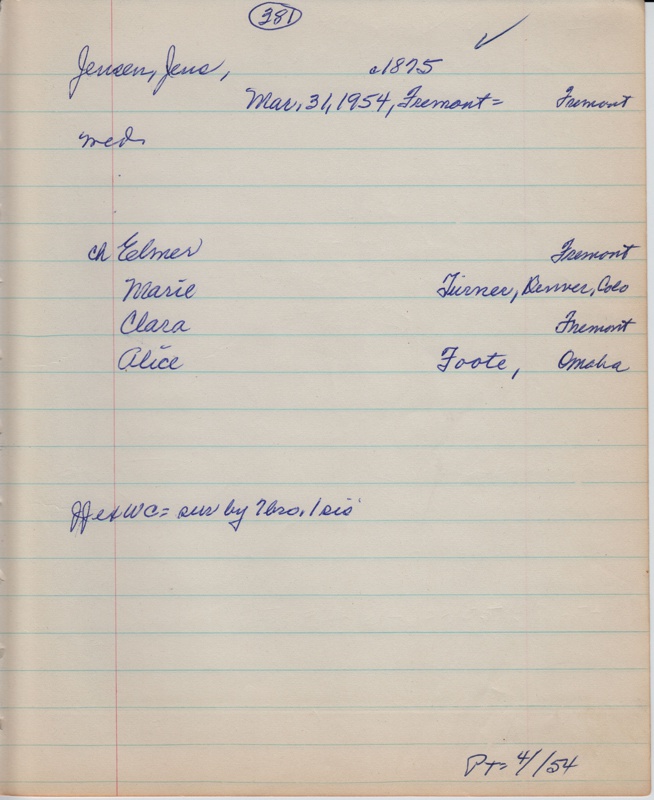 381
Jensen, Jens, c1875
Mar, 31, 1954, Fremont = Fremont
med
ch Elmer Fremont
Marie Turner, Denver, Colo
Clara Fremont
Alice Foote, Omaha
sur by 7bro, 1 sis
4/1/54